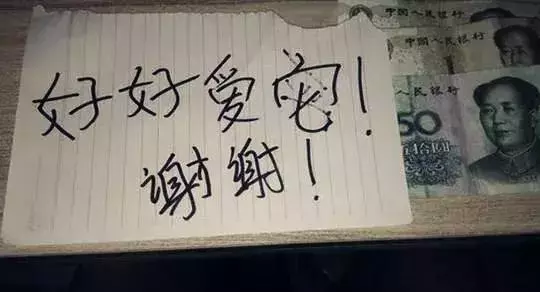 中国人民银行
中国人民银行
人民银行
50
拾圆
好好爱它!
谢谢!